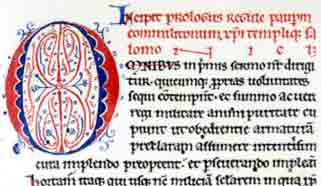 Incipit prologus regule paupm
commilitonum xpi templiq; sa
lomo n i c i
OMNIBUS in pmis sermo nr dirigi
tur. quicumq; pprias uoluntates
sequi contempnt. et summo ac uero
regi militare animi puritate cu
piunt ut obedientie armaturam
preclaram assumere intentissima
cura implendo preoptent. et pseuerando impleant.
hortam itaq; uos qui usq; nc miliciam seclarem in qua xpc